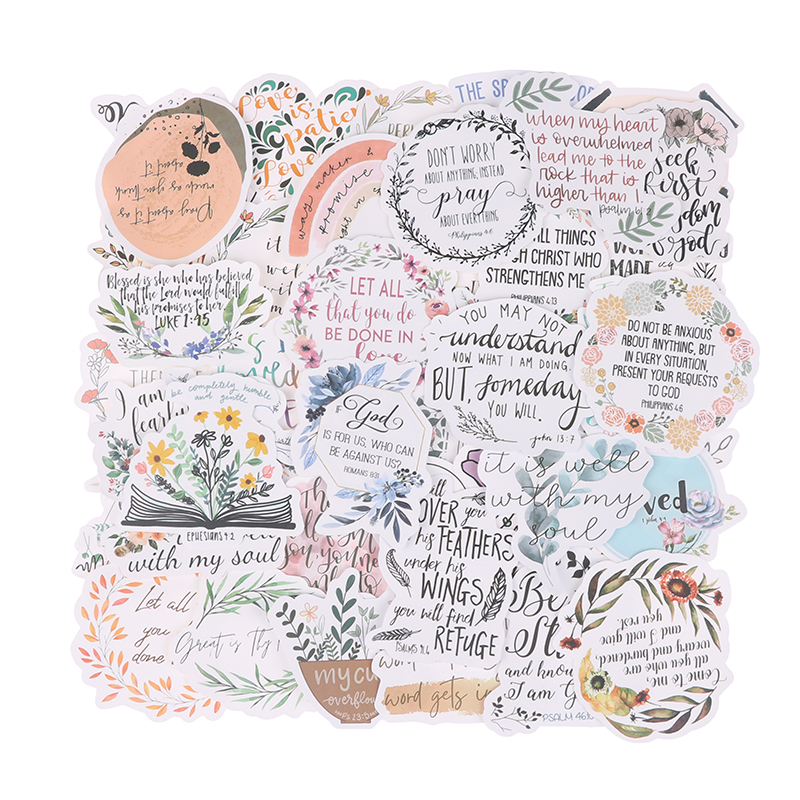 Pray about it as
much as you think
about it
Love is
patient
Love
THE SP
OF
way maker &
promise
DON'T WORRY
ABOUT ANYTHING; INSTEAD
pray
ABOUT EVERYTHING
Philippians 4:6
when my heart
is overwhelmed
lead me to the
rock that is
higher than I.
psalm 61
seek
first
God
MADE
ALL THINGS
CHRIST WHO
STRENGTHENS ME
PHILIPPIANS 4:13
Blessed is she who has believed
that the Lord would fulfill
his promises to her
LUKE 1:45
LET ALL
that you do
BE DONE IN
love
YOU MAY NOT
understand
NOW WHAT I AM DOING.
BUT, someday
YOU WILL.
john 13:7
DO NOT BE ANXIOUS
ABOUT ANYTHING, BUT
IN EVERY SITUATION,
PRESENT YOUR REQUESTS
TO GOD
PHILIPPIANS 4:6
I am
be completely humble
and gentle
EPHESIANS 4:2
with my soul
IF
God
IS FOR US, WHO CAN
BE AGAINST US?
ROMANS 8:31
OVER you
his FEATHERS
under his
WINGS
you will find
REFUGE
PSALMS 91:4
it is well
with my
soul
Let all
you
done
Great is Thy
my cu
overflow
word gets in
Be
St
and know
I am G
PSALM 46:
Come to me,
all you who are
weary and burdened
and I will give
you rest.